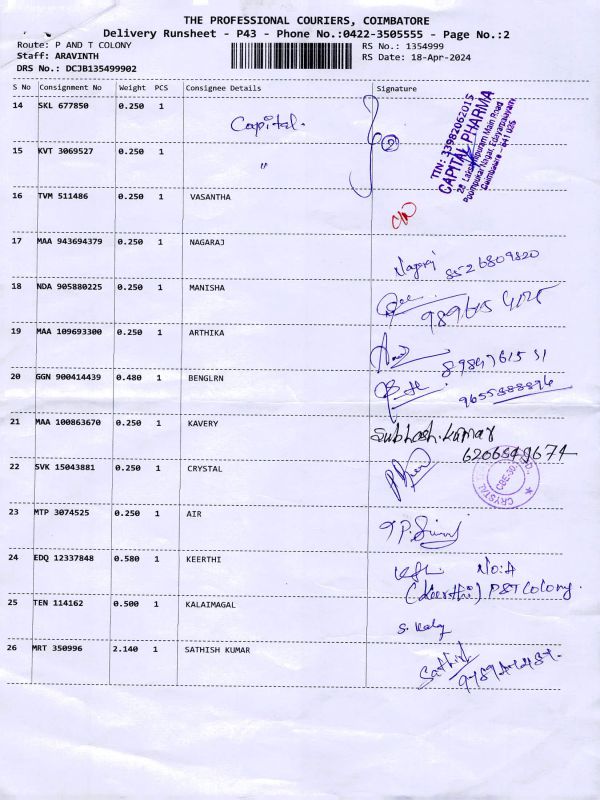 THE PROFESSIONAL COURIERS, COIMBATORE
Delivery Runsheet - P43 - Phone No.:0422-3505555 - Page No.:2
Route: P AND T COLONY RS No.: 1354999
Staff: ARAVINTH RS Date: 18-Apr-2024
DRS No.: DCJB135499902
S No Consignment No Weight PCS Consignee Details Signature
14 SKL 677850 0.250 1 Capital. 2
TIN: 33982062015
CAPITAL PHARMA
Coimbatore - 641 025
15 KVT 3069527 0.250 1 "
16 TVM 511486 0.250 1 VASANTHA
17 MAA 943694379 0.250 1 NAGARAJ Nagaraj 8526809820
18 NDA 905880225 0.250 1 MANISHA
19 MAA 109693300 0.250 1 ARTHIKA
20 GGN 900414439 0.480 1 BENGLRN 9655888896
21 MAA 100863670 0.250 1 KAVERY Subhash.Kumar
6206549674
22 SVK 15043881 0.250 1 CRYSTAL CRYSTAL
23 MTP 3074525 0.250 1 AIR
24 EDQ 12337848 0.580 1 KEERTHI No:A
(Keerthi) P&T Colony.
25 TEN 114162 0.500 1 KALAIMAGAL S. Kalai
26 MRT 350996 2.140 1 SATHISH KUMAR Sathish